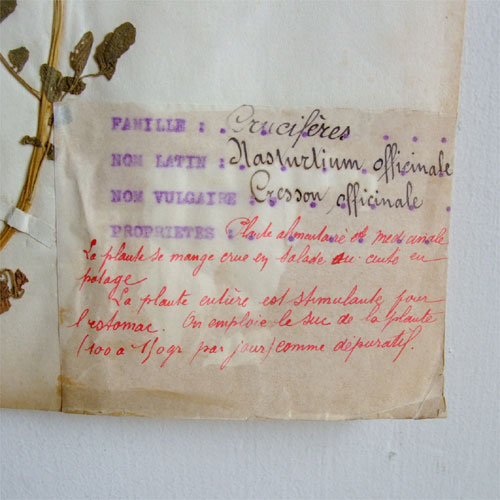 FAMILLE : Crucifères
NOM LATIN : Nasturtium officinale
NOM VULGAIRE : Cresson officinale
PROPRIETES : Plante alimentaire et médicinale
La plante se mange crue en salade ou cuite en
potage.
La plante entière est stimulante pour
l'estomac. On emploie le suc de la plante
(100 à 150gr par jour) comme dépuratif.